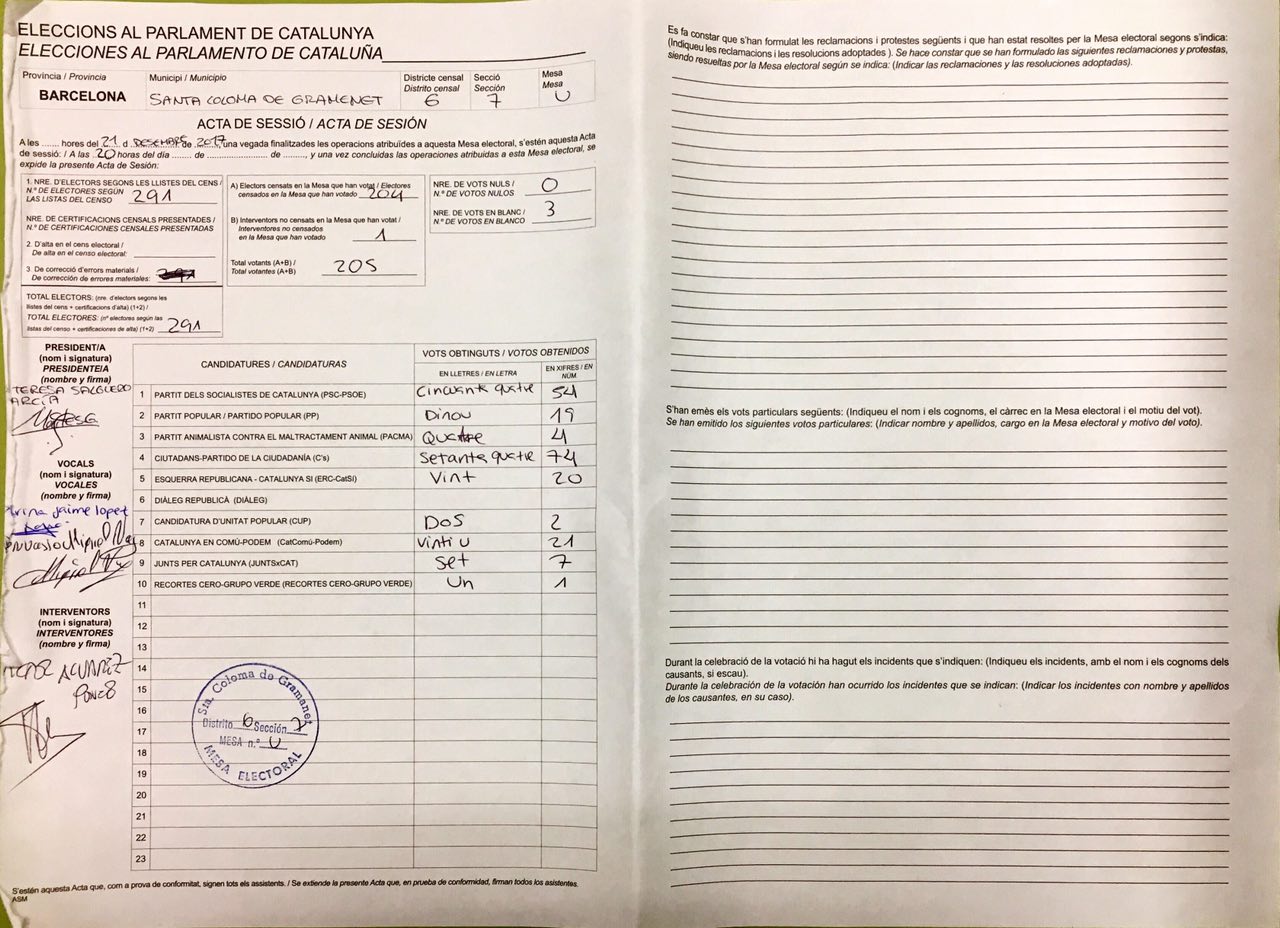 ELECCIONS AL PARLAMENT DE CATALUNYA
ELECCIONES AL PARLAMENTO DE CATALUÑA
Província / Provincia
BARCELONA
Municipi / Municipio
SANTA COLOMA DE GRAMENET
Districte censal
Distrito censal
6
Secció
Sección
7
Mesa
Mesa
U
ACTA DE SESSIÓ / ACTA DE SESIÓN
A les ....... hores del 21 d DESEMBRE de 2017, una vegada finalitzades les operacions atribuïdes a aquesta Mesa electoral, s'estén aquesta Acta
de sessió: / A las 20 horas del día ....... de ....................... de ......., y una vez concluidas las operaciones atribuidas a esta Mesa electoral, se
expide la presente Acta de Sesión:
1. NRE. D'ELECTORS SEGONS LES LLISTES DEL CENS /
N.º DE ELECTORES SEGÚN
LAS LISTAS DEL CENSO 291
NRE. DE CERTIFICACIONS CENSALS PRESENTADES /
N.º DE CERTIFICACIONES CENSALES PRESENTADAS
2. D'alta en el cens electoral /
De alta en el censo electoral:
3. De correcció d'errors materials /
De corrección de errores materiales:
TOTAL ELECTORS: (nre. d'electors segons les
llistes del cens + certificacions d'alta) (1+2) /
TOTAL ELECTORES: (nº electores según las
listas del censo + certificaciones de alta) (1+2) 291
A) Electors censats en la Mesa que han votat / Electores
censados en la Mesa que han votado 204
B) Interventors no censats en la Mesa que han votat /
Interventores no censados
en la Mesa que han votado 1
Total votants (A+B) /
Total votantes (A+B) 205
NRE. DE VOTS NULS /
N.º DE VOTOS NULOS 0
NRE. DE VOTS EN BLANC /
N.º DE VOTOS EN BLANCO 3
PRESIDENT/A
(nom i signatura)
PRESIDENTE/A
(nombre y firma)
TERESA SALGUERO
ARCIA
VOCALS
(nom i signatura)
VOCALES
(nombre y firma)
jaime lopez
Miguel
INTERVENTORS
(nom i signatura)
INTERVENTORES
(nombre y firma)
ALVAREZ
CANDIDATURES / CANDIDATURAS
VOTS OBTINGUTS / VOTOS OBTENIDOS
EN LLETRES / EN LETRA
EN XIFRES / EN NÚM.
1 PARTIT DELS SOCIALISTES DE CATALUNYA (PSC-PSOE) Cincuanta quatre 54
2 PARTIT POPULAR / PARTIDO POPULAR (PP) Dinou 19
3 PARTIT ANIMALISTA CONTRA EL MALTRACTAMENT ANIMAL (PACMA) Quatre 4
4 CIUTADANS-PARTIDO DE LA CIUDADANÍA (C's) Setanta quatre 74
5 ESQUERRA REPUBLICANA - CATALUNYA SI (ERC-CatSí) Vint 20
6 DIÀLEG REPUBLICÀ (DIÀLEG)
7 CANDIDATURA D'UNITAT POPULAR (CUP) Dos 2
8 CATALUNYA EN COMÚ-PODEM (CatComú-Podem) Vinti u 21
9 JUNTS PER CATALUNYA (JUNTSxCAT) Set 7
10 RECORTES CERO-GRUPO VERDE (RECORTES CERO-GRUPO VERDE) Un 1
11
12
13
14
15
16
17
18
19
20
21
22
23
Sta. Coloma de Gramanet
Distrito 6 Sección 7
MESA n.º U
MESA ELECTORAL
S'estén aquesta Acta que, com a prova de conformitat, signen tots els assistents. / Se extiende la presente Acta que, en prueba de conformidad, firman todos los asistentes.
ASM
Es fa constar que s'han formulat les reclamacions i protestes següents i que han estat resoltes per la Mesa electoral segons s'indica:
(Indiqueu les reclamacions i les resolucions adoptades ). Se hace constar que se han formulado las siguientes reclamaciones y protestas,
siendo resueltas por la Mesa electoral según se indica: (Indicar las reclamaciones y las resoluciones adoptadas).
S'han emès els vots particulars següents: (Indiqueu el nom i els cognoms, el càrrec en la Mesa electoral i el motiu del vot).
Se han emitido los siguientes votos particulares: (Indicar nombre y apellidos, cargo en la Mesa electoral y motivo del voto).
Durant la celebració de la votació hi ha hagut els incidents que s'indiquen: (Indiqueu els incidents, amb el nom i els cognoms dels
causants, si escau).
Durante la celebración de la votación han ocurrido los incidentes que se indican: (Indicar los incidentes con nombre y apellidos
de los causantes, en su caso).